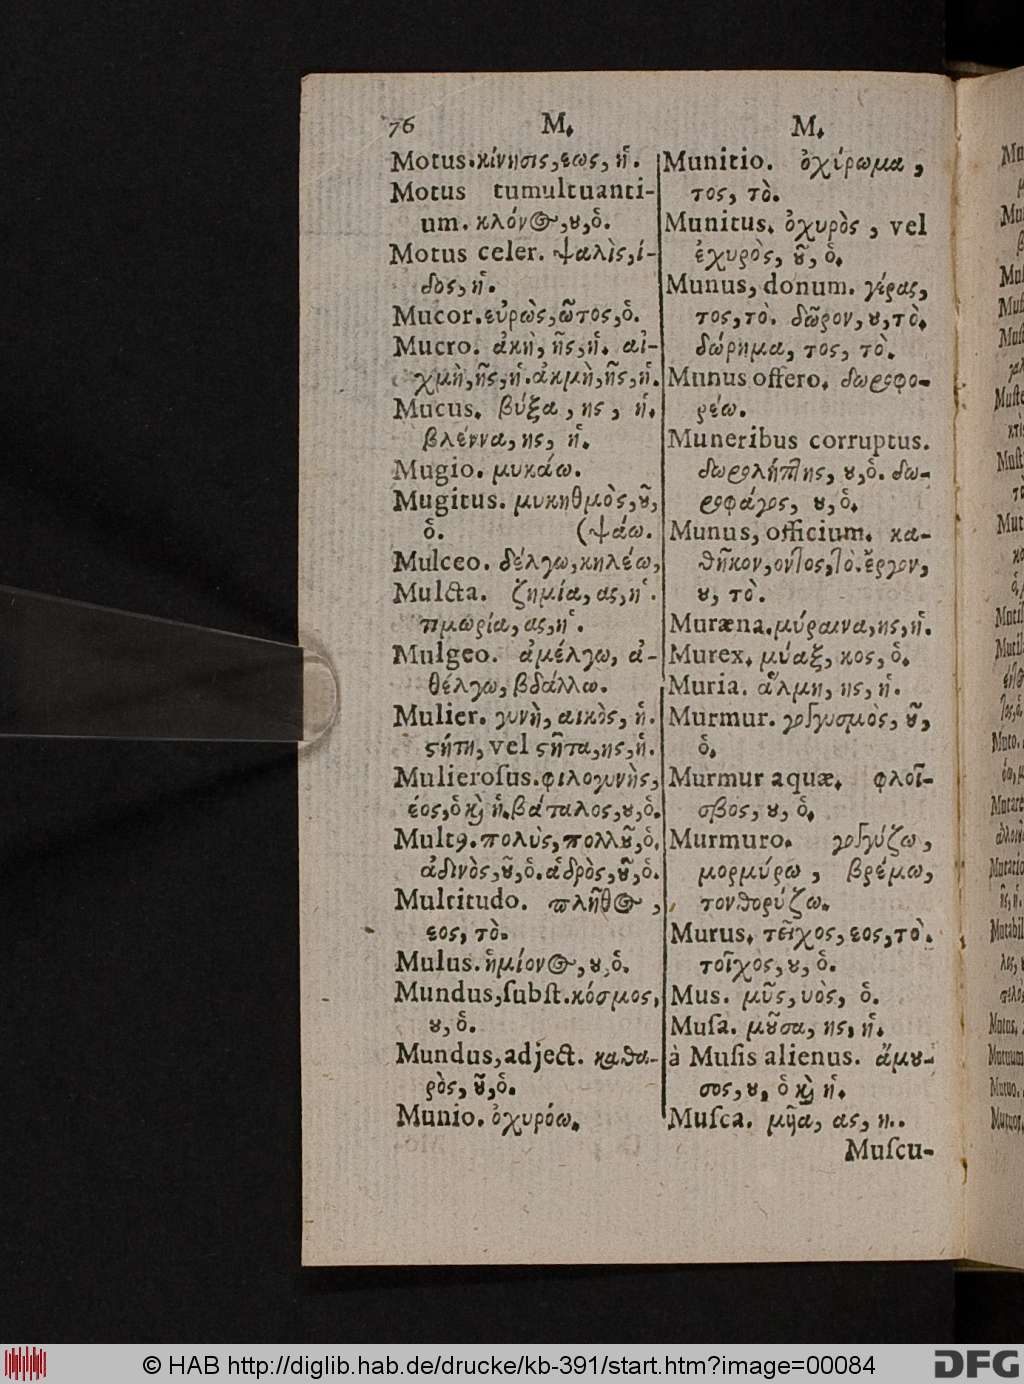 76 M. M.
Motus. κίνησις, εως, ἡ.
Motus tumultuanti-
um. κλόνος, ου, ὁ.
Motus celer. ψαλὶς, ί-
δος, ἡ.
Mucor. εὐρὼς, ῶτος, ὁ.
Mucro. ἀκὴ, ῆς, ἡ. αἰ-
χμὴ, ῆς, ἡ. ἀκμὴ, ῆς, ἡ.
Mucus. βύξα, ης, ἡ.
βλέννα, ης, ἡ.
Mugio. μυκάω.
Mugitus. μυκηθμὸς, οῦ,
ὁ. (ψάω.
Mulceo. θέλγω, κηλέω,
Mulcta. ζημία, ας, ἡ.
τιμωρία, ας, ἡ.
Mulgeo. ἀμέλγω, ἀ-
θέλγω, βδάλλω.
Mulier. γυνὴ, αικὸς, ἡ.
στήτη, vel στῆτα, ης, ἡ.
Mulieroſus. φιλογυνὴς,
έος, ὁ καὶ ἡ. βάταλος, ου, ὁ.
Multꝰ. πολὺς, πολλοῦ, ὁ.
ἀδινὸς, οῦ, ὁ. ἁδρὸς, οῦ, ὁ.
Multitudo. πλῆθος,
εος, τὸ.
Mulus. ἡμίονος, ου, ὁ.
Mundus, ſubſt. κόσμος,
ου, ὁ.
Mundus, adject. καθα-
ρὸς, οῦ, ὁ.
Munio. ὀχυρόω.
Munitio. ὀχύρωμα,
τος, τὸ.
Munitus. ὀχυρὸς, vel
ἐχυρὸς, οῦ, ὁ.
Munus, donum. γέρας,
τος, τὸ. δῶρον, ου, τὸ.
δώρημα, τος, τὸ.
Munus offero. δωροφο-
ρέω.
Muneribus corruptus.
δωρολήπτης, ου, ὁ. δω-
ροφάγος, ου, ὁ.
Munus, officium. κα-
θῆκον, οντος, τὸ. ἔργον,
ου, τὸ.
Muræna. μύραινα, ης, ἡ.
Murex. μύαξ, κος, ὁ.
Muria. ἅλμη, ης, ἡ.
Murmur. γογγυσμὸς, οῦ,
ὁ.
Murmur aquæ. φλοῖ-
σβος, ου, ὁ.
Murmuro. γογγύζω,
μορμύρω, βρέμω,
τονθορύζω.
Murus. τεῖχος, εος, τὸ.
τοῖχος, ου, ὁ.
Mus. μῦς, υὸς, ὁ.
Muſa. μοῦσα, ης, ἡ.
à Muſis alienus. ἄμου-
σος, ου, ὁ καὶ ἡ.
Muſca. μυῖα, ας, η..
Muſcu-
© HAB http://diglib.hab.de/drucke/kb-391/start.htm?image=00084
DFG